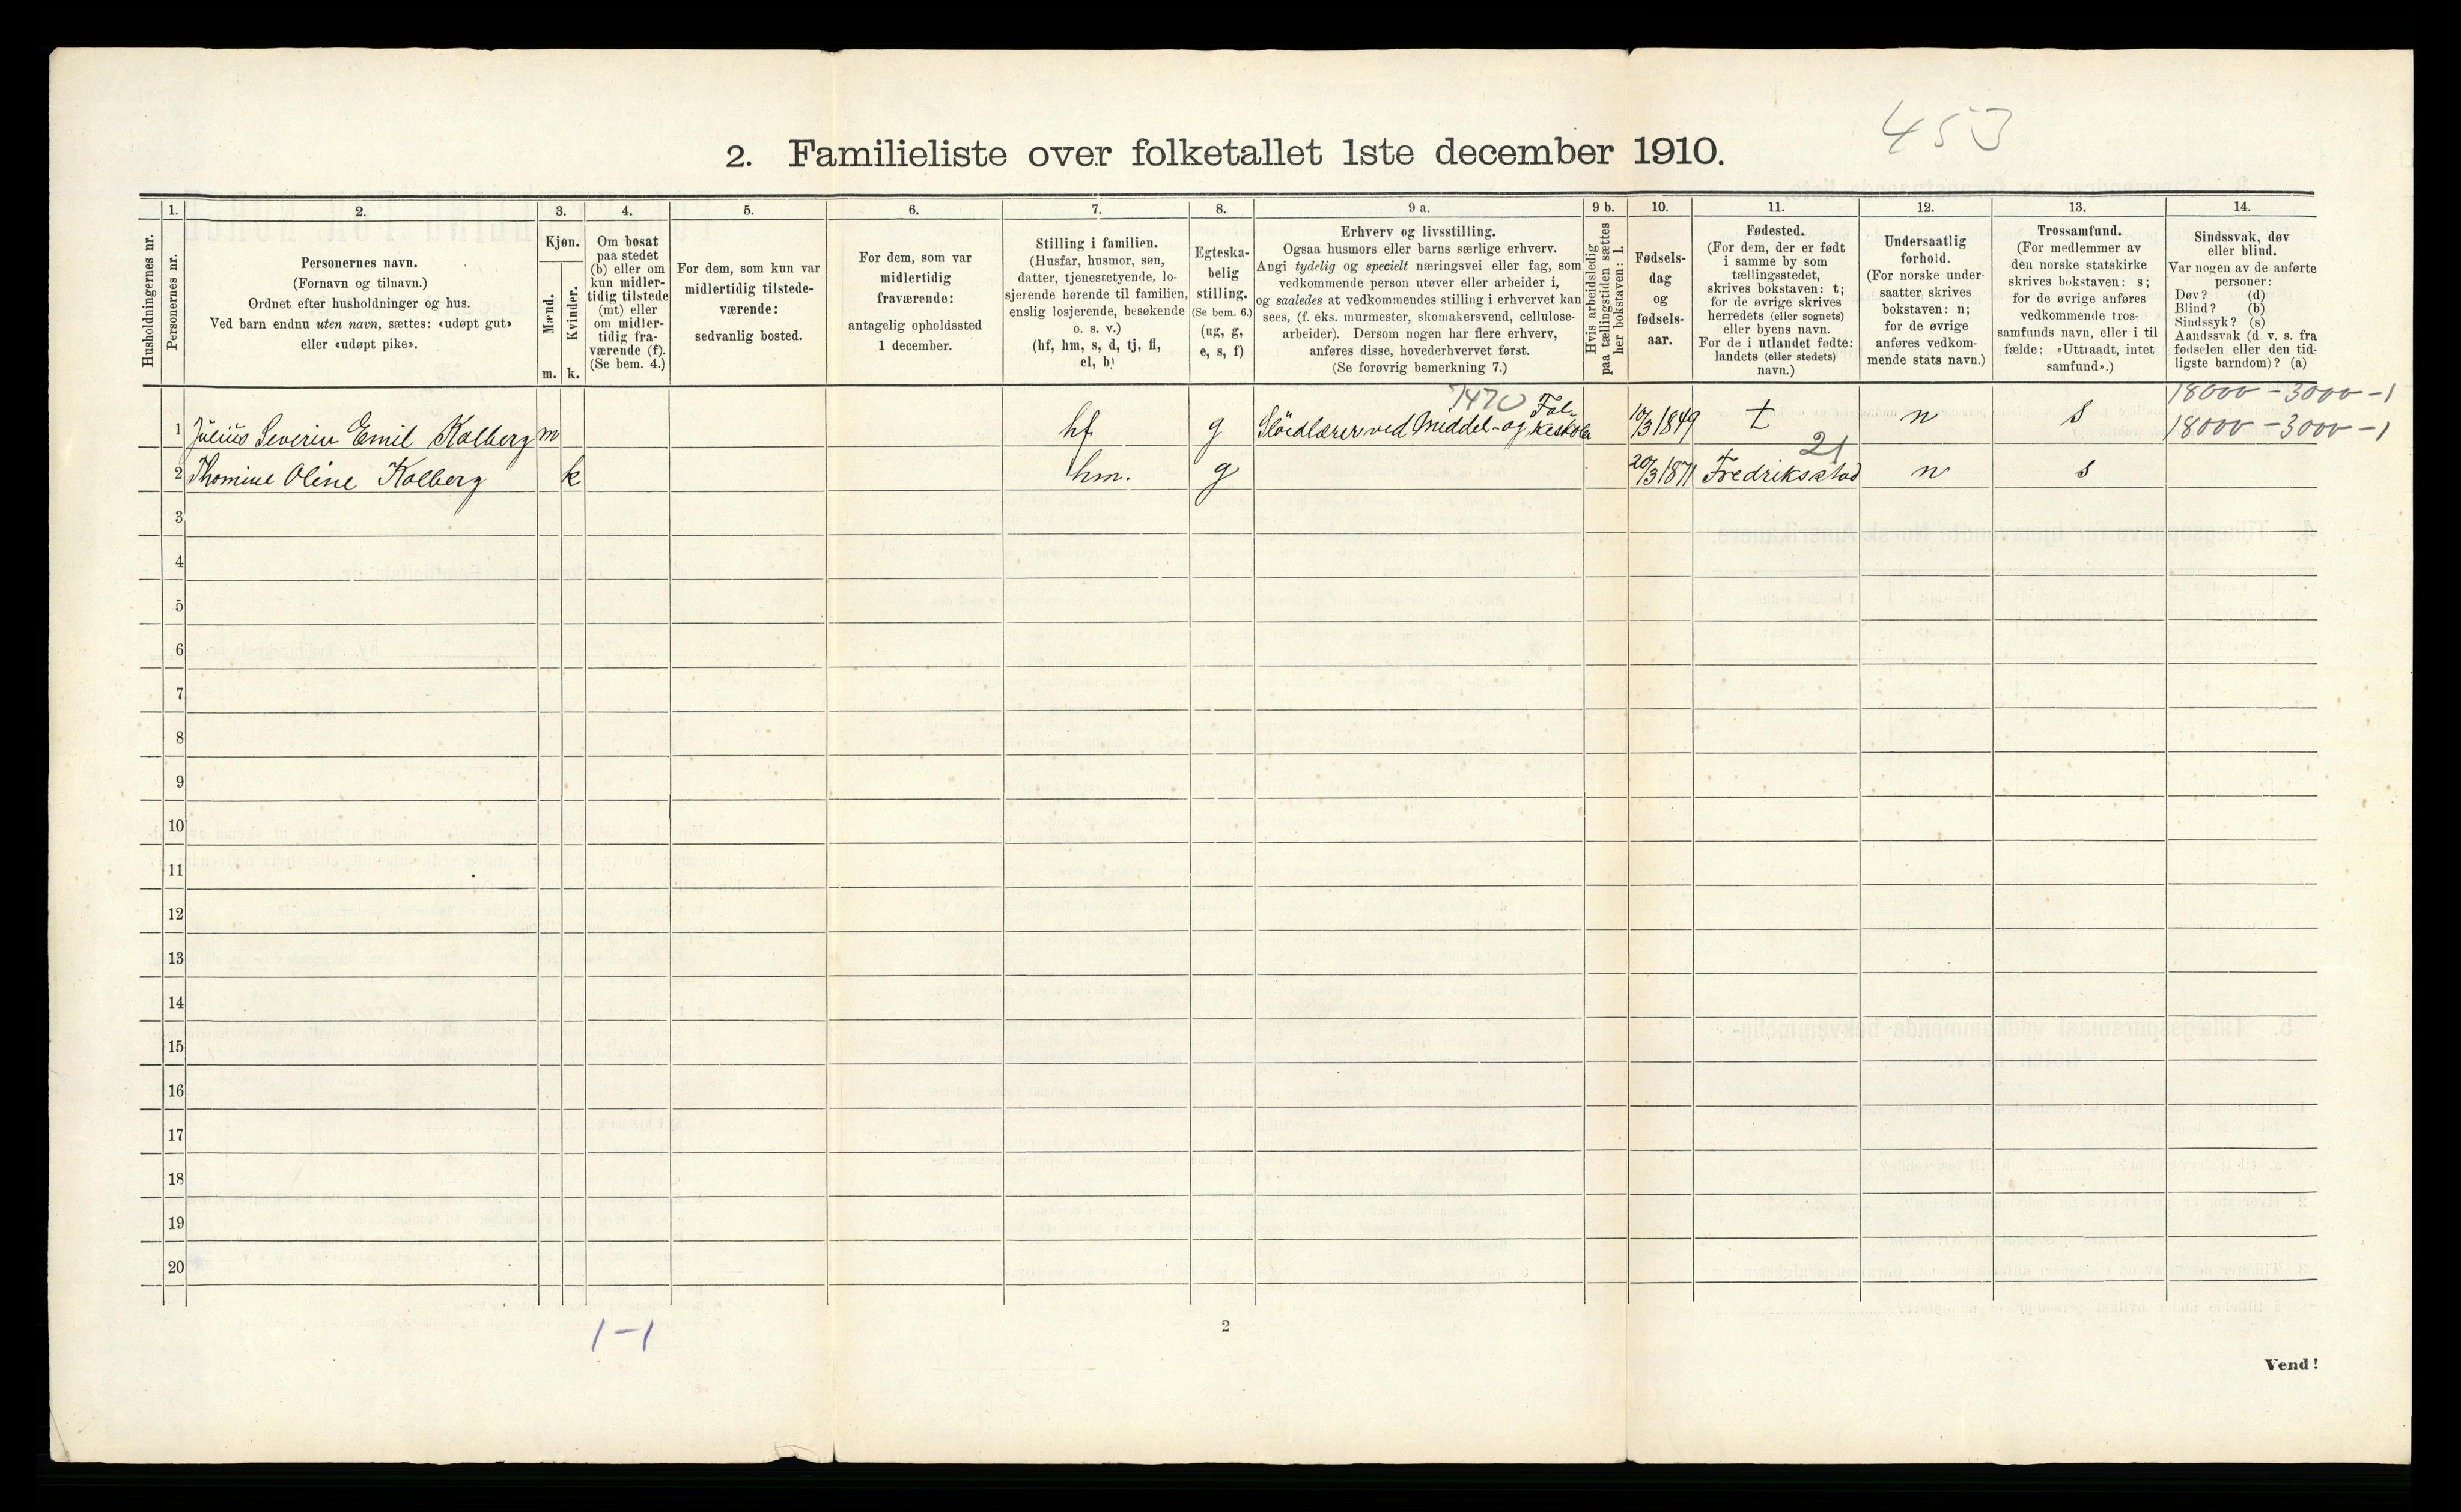 453
2. Familieliste over folketallet 1ste december 1910.
Husholdningernes nr.
1.
Personernes nr.
2.
Personernes navn.
(Fornavn og tilnavn.)
Ordnet efter husholdninger og hus.
Ved barn endnu uten navn, sættes: «udøpt gut»
eller «udøpt pike».
3.
Kjøn.
Mænd.
Kvinder.
m. k.
4.
Om bosat
paa stedet
(b) eller om
kun midler-
tidig tilstede
(mt) eller
om midler-
tidig fra-
værende (f).
(Se bem. 4.)
5.
For dem, som kun var
midlertidig tilstede-
værende:
sedvanlig bosted.
6.
For dem, som var
midlertidig
fraværende:
antagelig opholdssted
1 december.
7.
Stilling i familien.
(Husfar, husmor, søn,
datter, tjenestetyende, lo-
sjerende hørende til familien,
enslig losjerende, besøkende
o. s. v.)
(hf, hm, s, d, tj, fl,
el, b)
8.
Egteska-
belig
stilling.
(Se bem. 6.)
(ug, g,
e, s, f)
9 a.
Erhverv og livsstilling.
Ogsaa husmors eller barns særlige erhverv.
Angi tydelig og specielt næringsvei eller fag, som
vedkommende person utøver eller arbeider i,
og saaledes at vedkommendes stilling i erhvervet kan
sees, (f. eks. murmester, skomakersvend, cellulose-
arbeider). Dersom nogen har flere erhverv,
anføres disse, hovederhvervet først.
(Se forøvrig bemerkning 7.)
9 b.
Hvis arbeidsledig
paa tællingstiden sættes
her bokstaven: l.
10.
Fødsels-
dag
og
fødsels-
aar.
11.
Fødested.
(For dem, der er født
i samme by som
tællingsstedet,
skrives bokstaven: t;
for de øvrige skrives
herredets (eller sognets)
eller byens navn.
For de i utlandet fødte:
landets (eller stedets)
navn.)
12.
Undersaatlig
forhold.
(For norske under-
saatter skrives
bokstaven: n;
for de øvrige
anføres vedkom-
mende stats navn.)
13.
Trossamfund.
(For medlemmer av
den norske statskirke
skrives bokstaven: s;
for de øvrige anføres
vedkommende tros-
samfunds navn, eller i til
fælde: «Uttraadt, intet
samfund».)
14.
Sindssvak, døv
eller blind.
Var nogen av de anførte
personer:
Døv? (d)
Blind? (b)
Sindssyk? (s)
Aandssvak (d v. s. fra
fødselen eller den tid-
ligste barndom)? (a)
7470 18000 - 3000 - 1
1 Julius Severin Emil Kolberg m hf g Sløidlærer ved Middel- og Folkeskole 10/3 1849 t n s 18000 - 3000 - 1
21
2 Thomine Oline Kolberg k hm. g 20/3 1871 Fredriksstad n s
3
4
5
6
7
8
9
10
11
12
13
14
15
16
17
18
19
20
1-1
2
Vend!